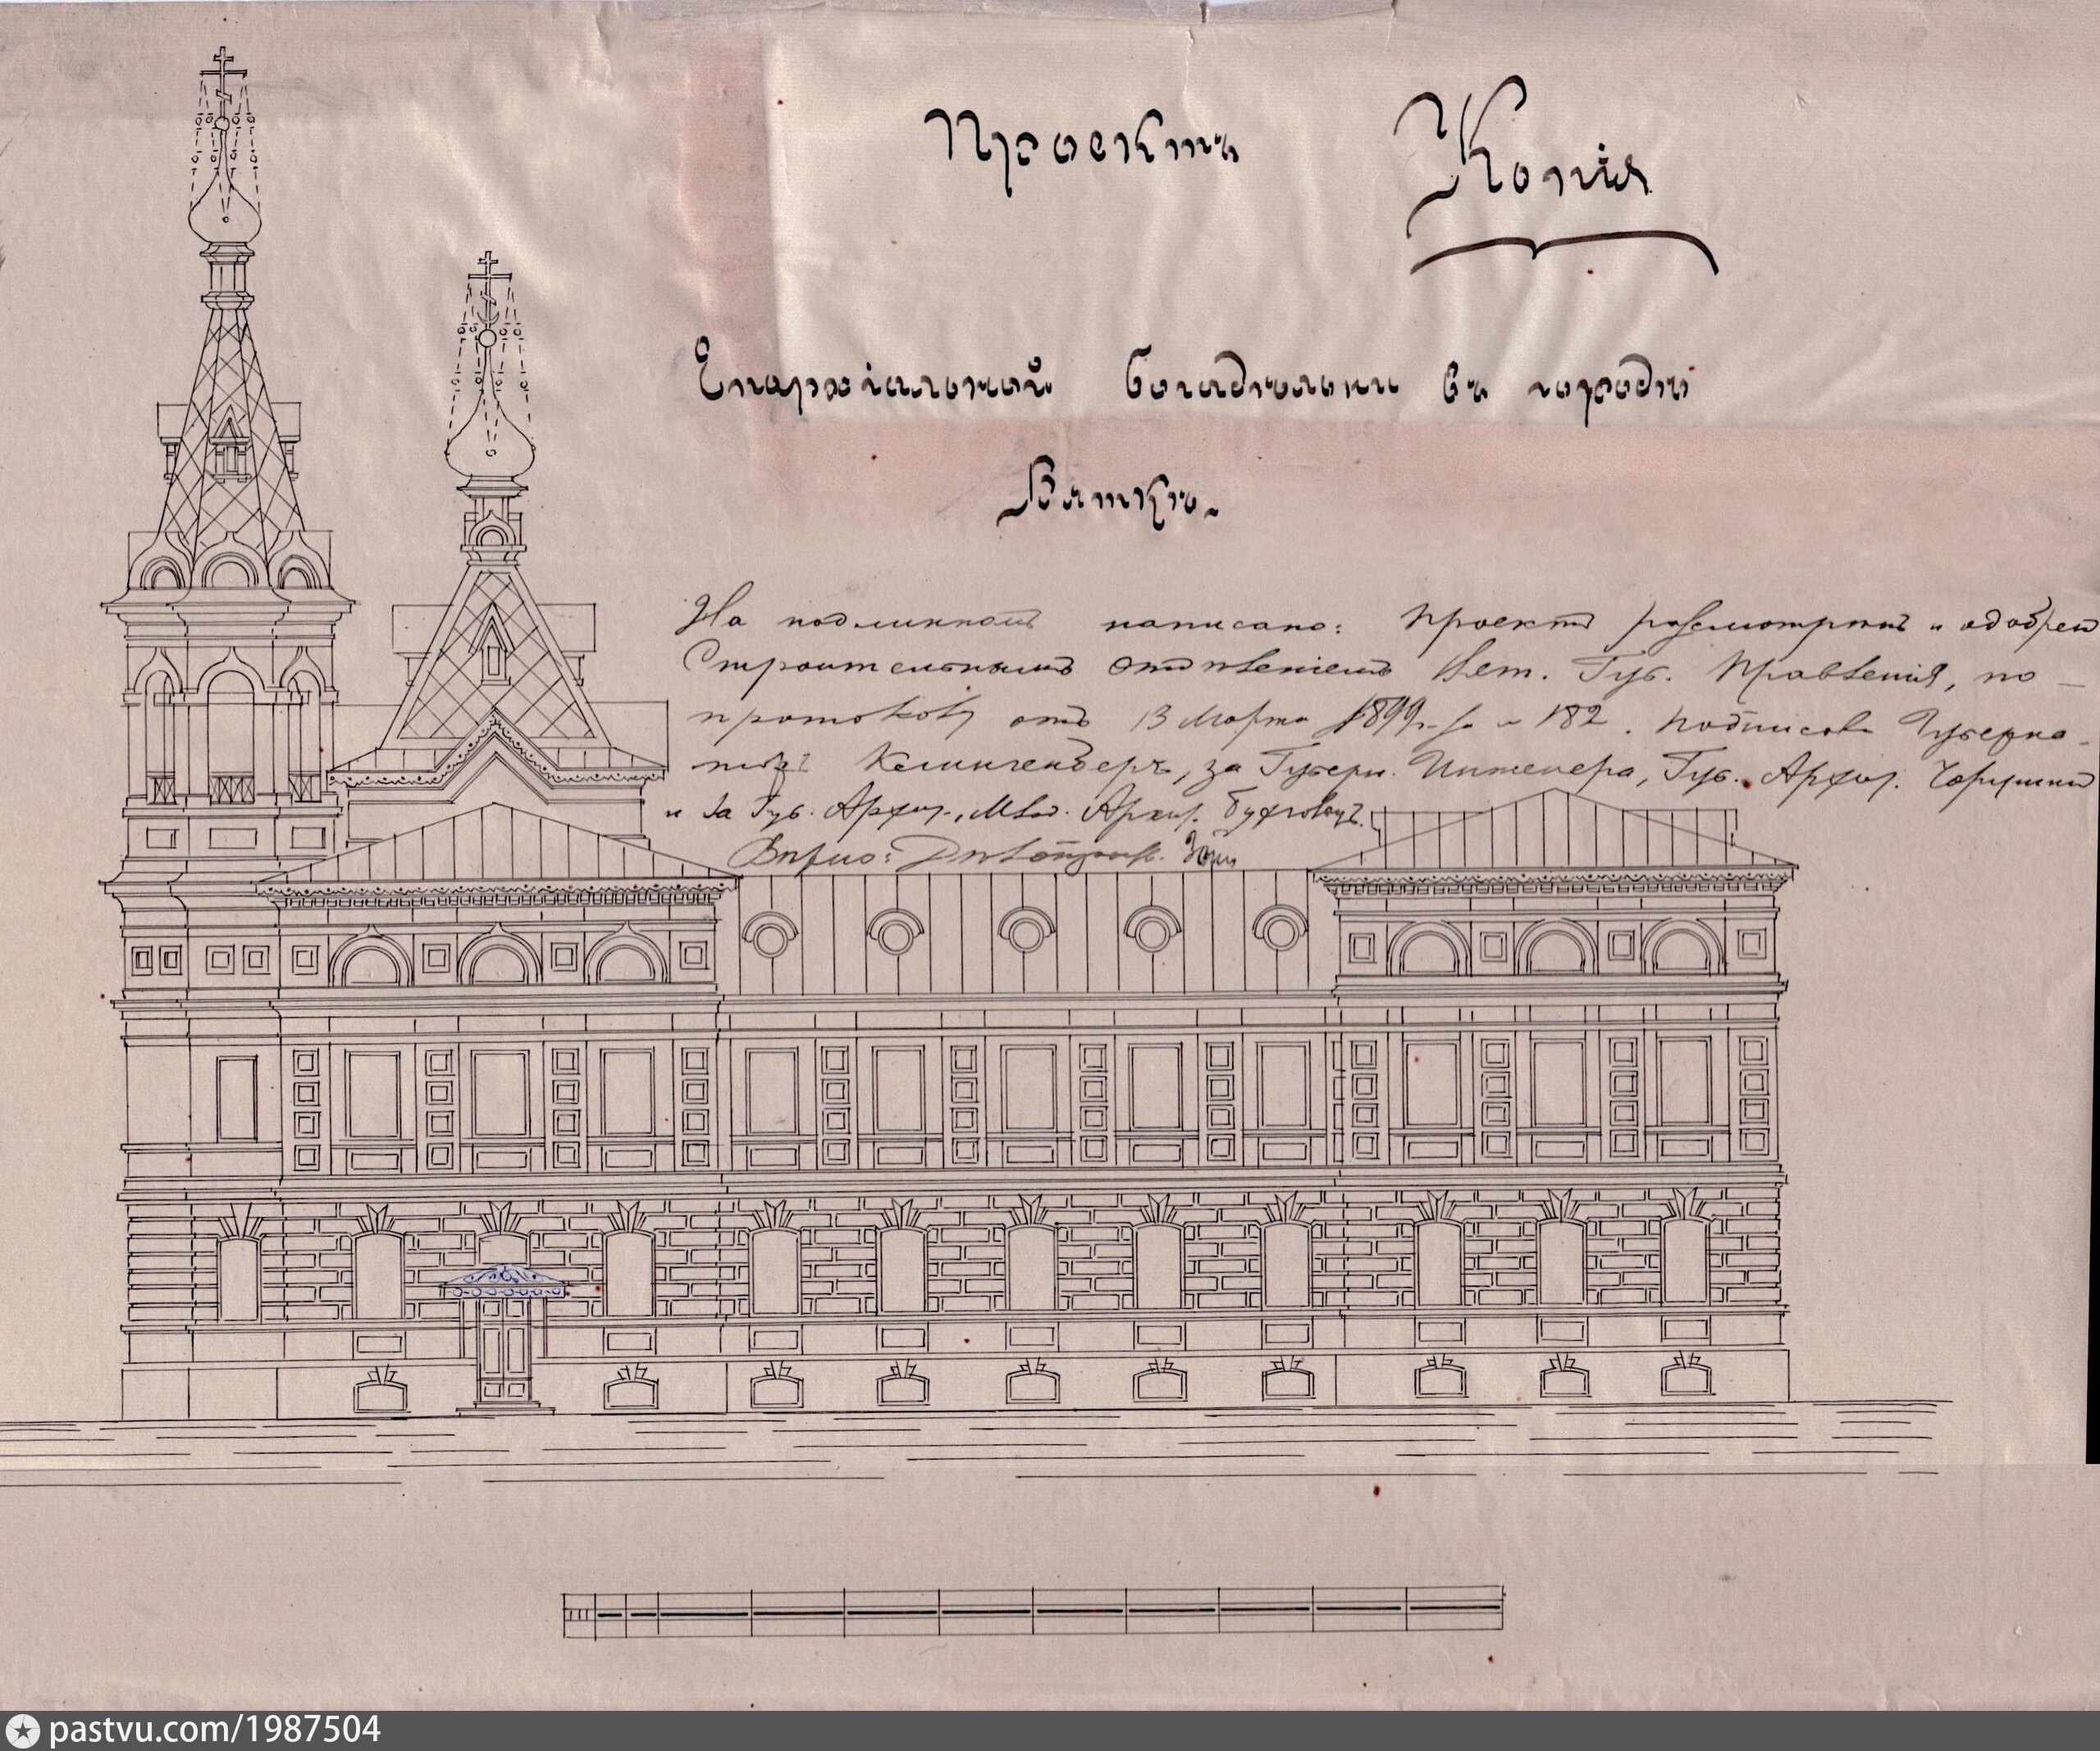 Проектъ Копія
Епархіальной богадѣльни въ городѣ
Вяткѣ.
На подлинномъ написано: Проектъ разсмотренъ и одобрен
Строительнымъ Отдѣленіемъ Вят. Губ. Правленія, по
протоколу отъ 13 Марта 1899 г. за № 182. Подписали Губерна-
торъ Клингенберъ, за Губерн. Инженера, Губ. Архит. Чарушинъ
и за Губ. Архит., Млад. Архит.
Вѣрно:
pastvu.com/1987504